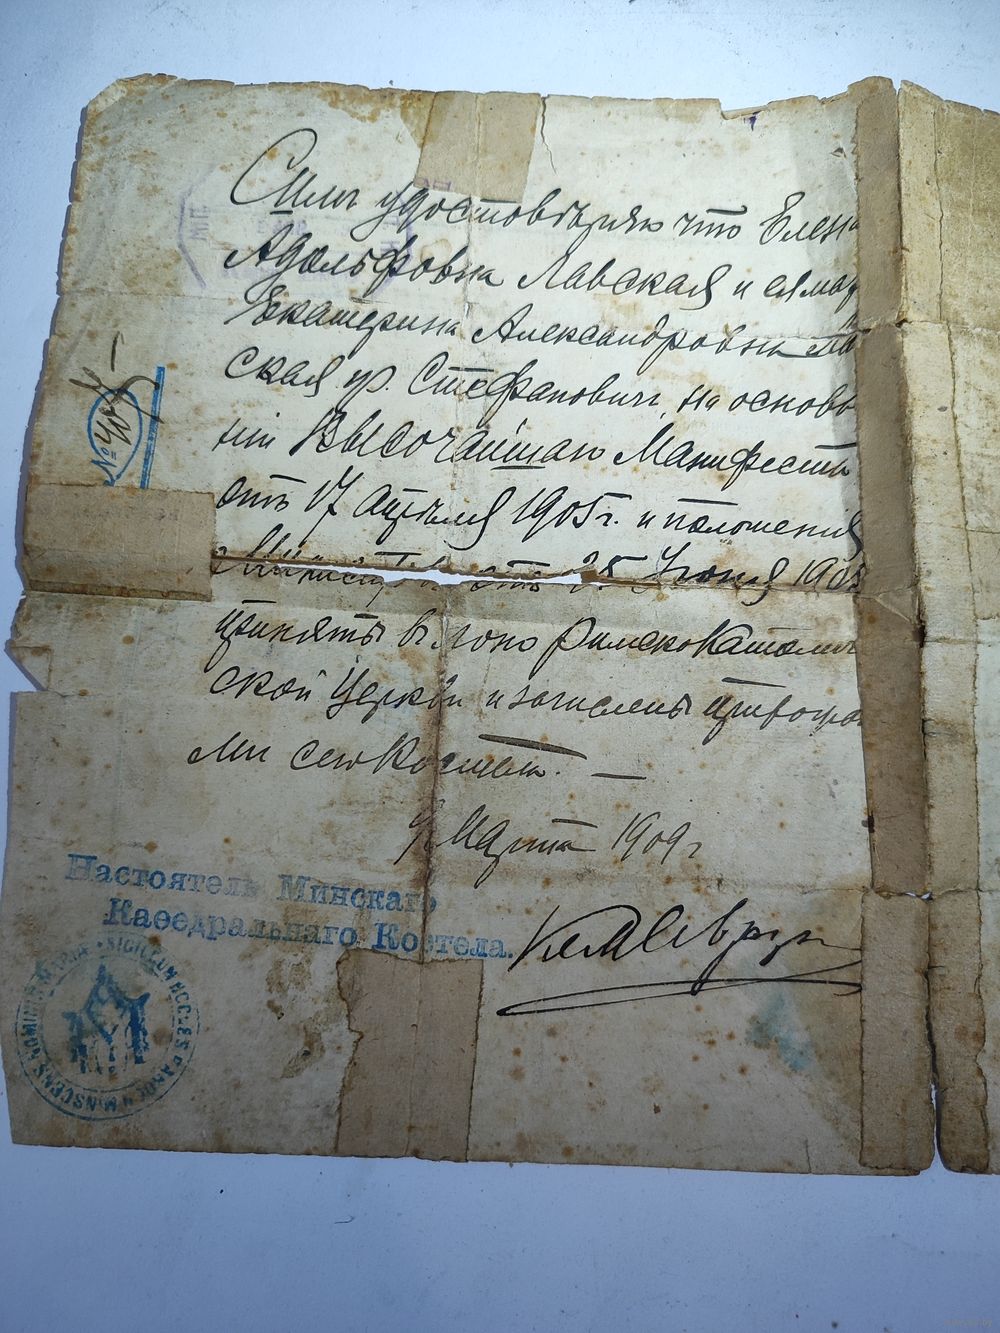 Симъ удостовѣряю что Елена
Адольфовна Лавская и ея мат
Екатерина Александровна Ла
ская ур. Стефанович, на основа
ніи Высочайшаго Манифеста
отъ 17 апрѣля 1905 г. и положенія
отъ 25 Іюня 1905
приняты въ лоно Римско Католич
ской Церкви и зачислены прихожа
ми сего Костела. —
9 Марта 1909 г
№
Настоятель Минскаго
Каѳедральнаго Костела.
SIGILLUM ECCLES PAROCH MINSCENS NOMINIS MARIA